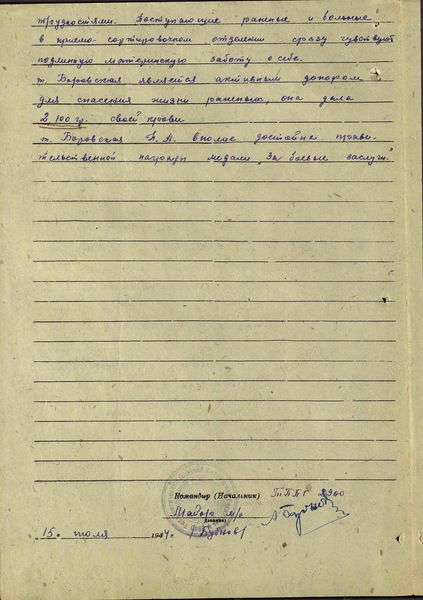 трудностями. Поступающие раненые и больные
в приемо-сортировочном отделении сразу чувствуют
подлинную материнскую заботу о себе.
т. Боровская является активным донором
для спасения жизни раненых, она дала
2 100 гр. своей крови
т. Боровская П. А. вполне достойна прави-
тельственной награды медали „За боевые заслуги".
Командир (Начальник) ТППГ 2900
Майор м/с
(звание)
15. июля 1944 г. / Бубнов /